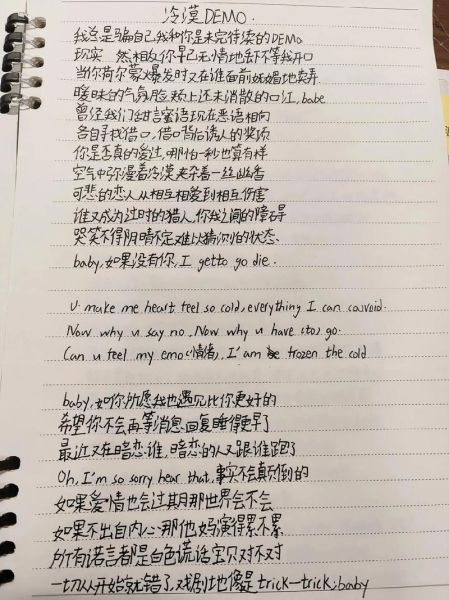 冷漠DEMO.
我总是骗自己,我和你是未完待续的DEMO
现实 然相反你早已无情地丢不等我开口
当你荷尔蒙爆发时又在谁面前妩媚地卖弄
暧昧的气氛脸颊上还未消散的口红,babe
曾经我们甜言蜜语现在恶语相向
各自寻找借口,借口背后诱人的奖项
你是否真的爱过,哪怕一秒也算有样
空气中弥漫着冷漠夹杂着一丝幽香
可悲的恋人从相互相爱到相互伤害
谁又成为过时的猎人,你我之间的障碍
哭笑不得阴晴不定难以猜测的状态.
baby,如果没有你,I getto go die.
U make me heart feel so cold,everything I can (avoid.
Now why u say no.Now why u have (to) go.
Can u feel my emo(情绪), I'am frozen the cold
baby,如你所愿我也遇见比你更好的
希望你不会再等消息回复睡得更早了
最近又在暗恋谁,暗恋的人又跟谁跑了
Oh, I'm so sorry hear that,事实不会颠倒的
如果爱情也会过期那世界会不会
如果不出自内心那他妈演得累不累
所有诺言都是白色谎话宝贝对不对
一切从开始就错了,戏剧地像是trick-trick,baby